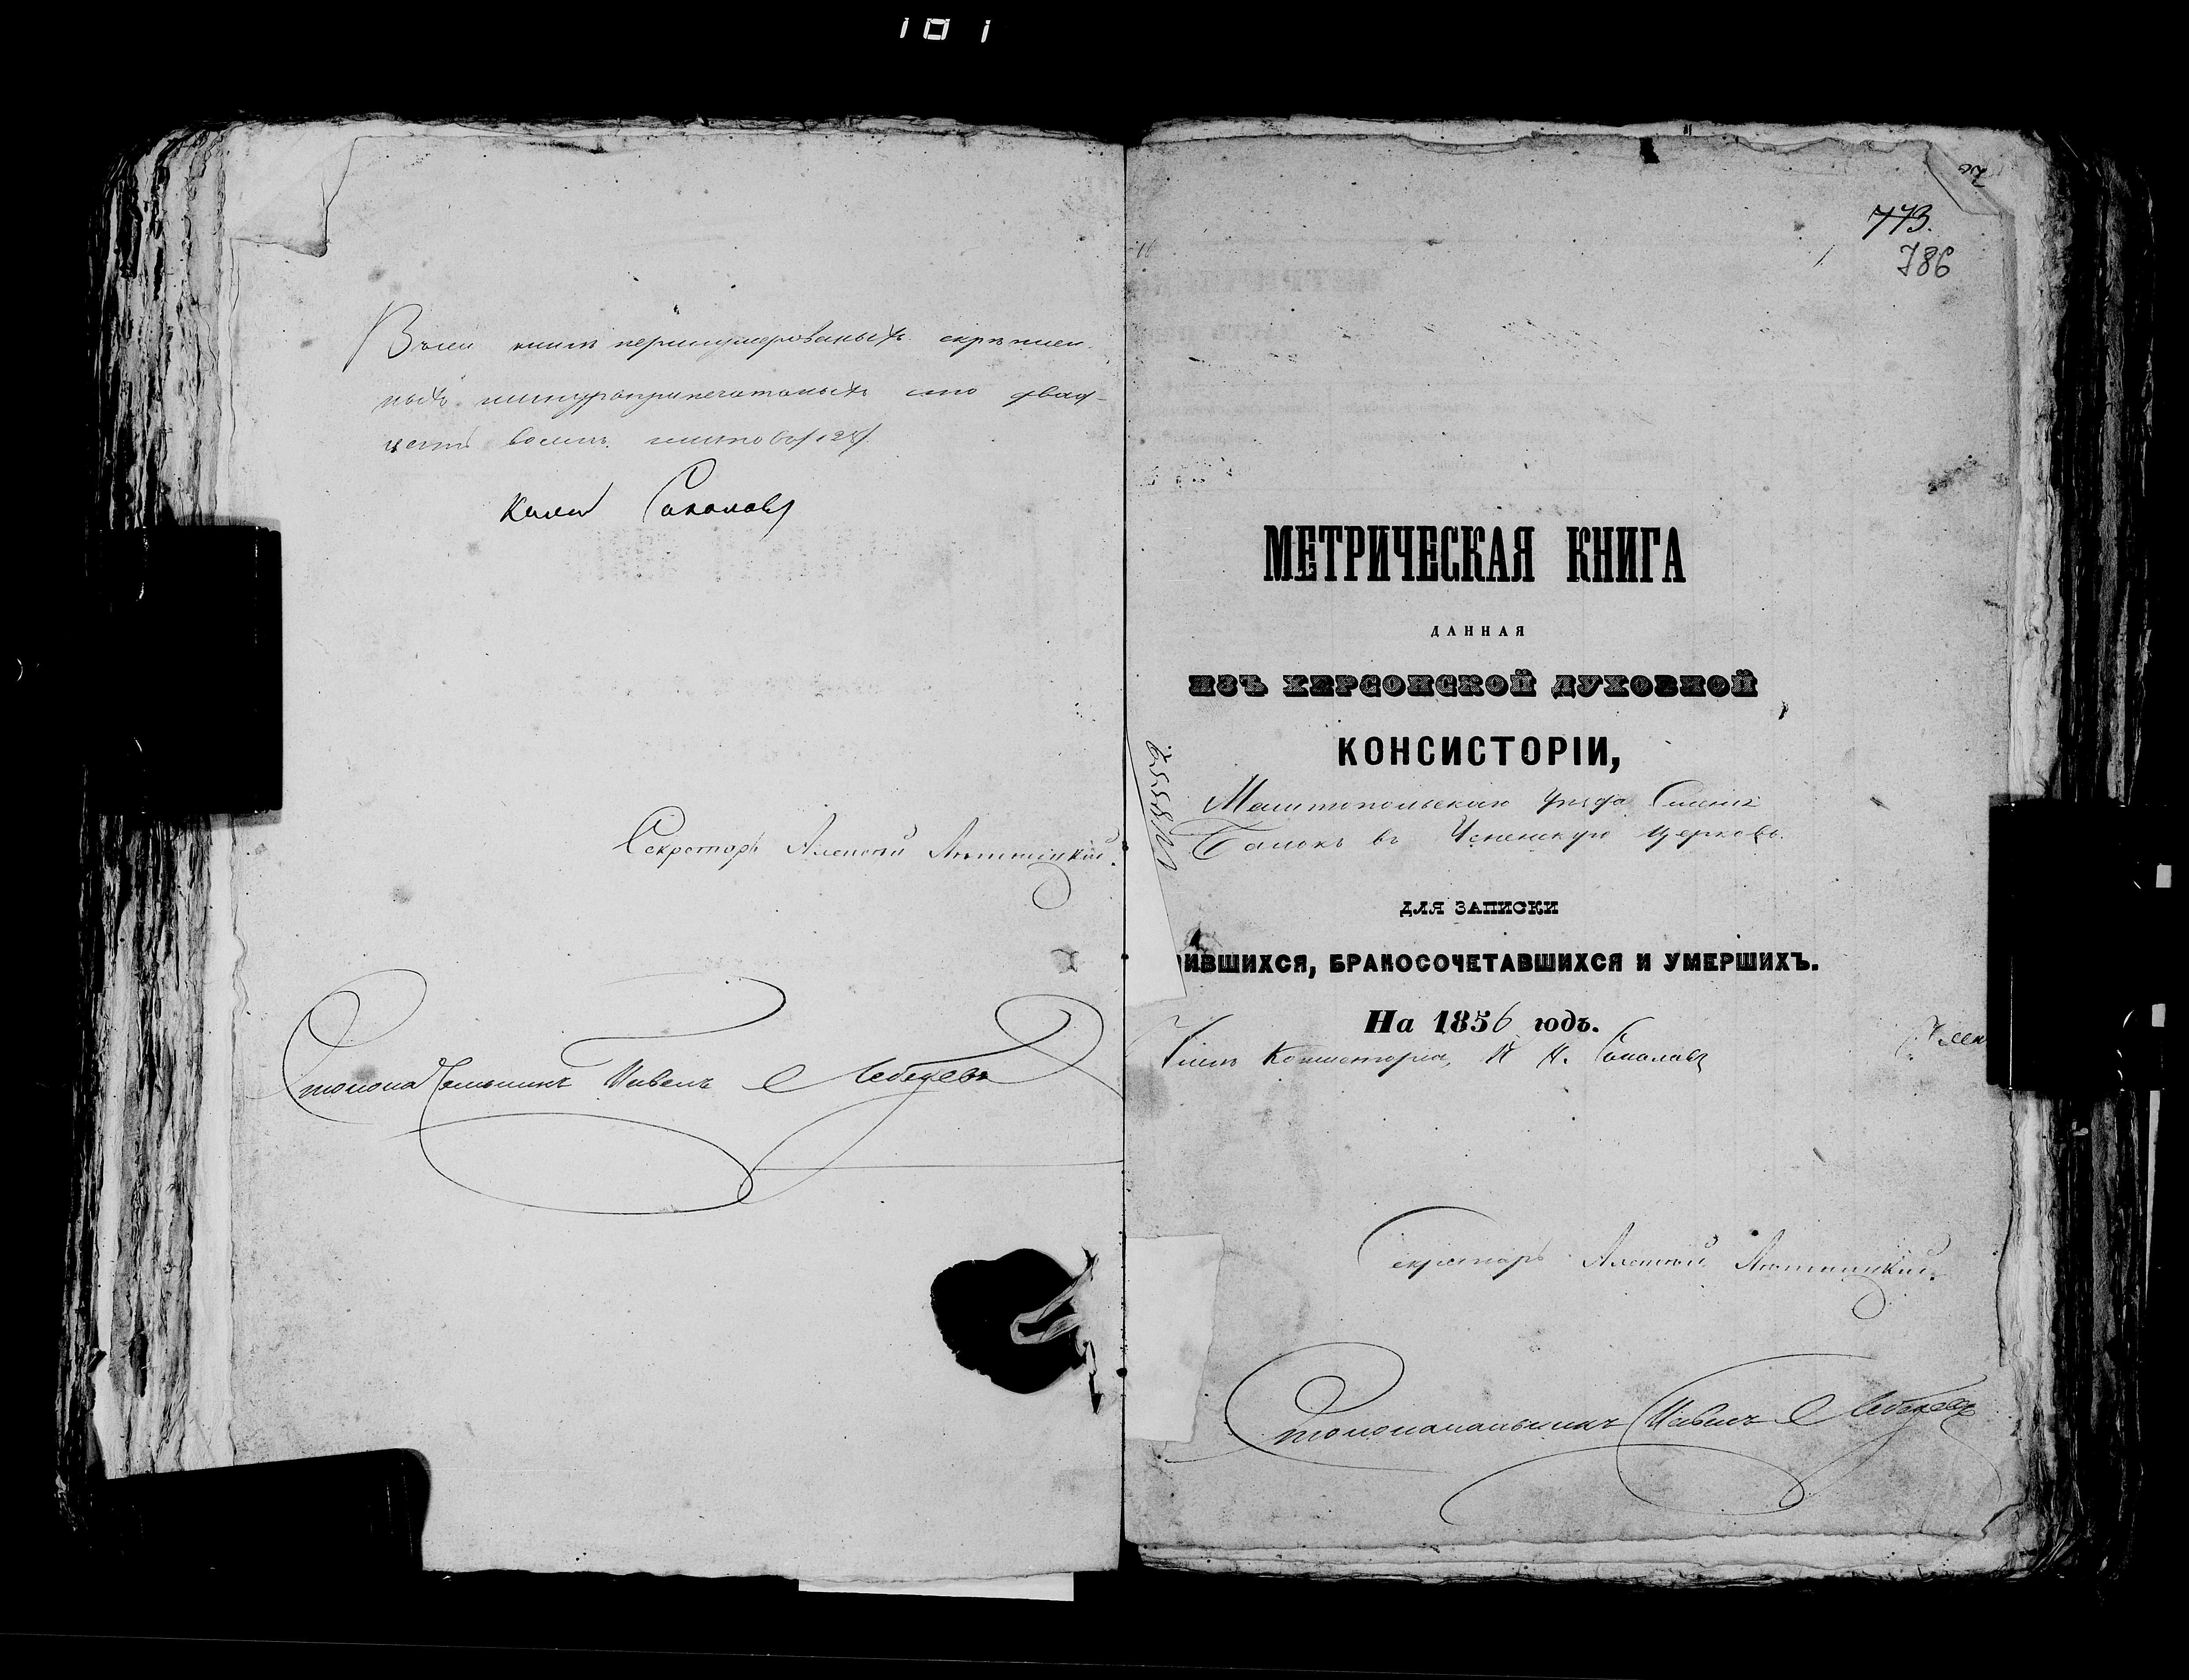 101
Въ сей книгѣ перенумерованыхъ скрѣплен-
ныхъ шнуроприпечатаныхъ сто двад-
цать восемь листовъ /128/.
Соколовъ
Секретарь Алексѣй
Столоначальникъ Павелъ Лебедевъ
773.
786
МЕТРИЧЕСКАЯ КНИГА
ДАННАЯ
ИЗЪ ХЕРСОНСКОЙ ДУХОВНОЙ
КОНСИСТОРІИ,
Мелитопольскаго уѣзда
Балокъ въ Успенскую церковь.
ДЛЯ ЗАПИСКИ
ИВШИХСЯ, БРАКОСОЧЕТАВШИХСЯ И УМЕРШИХЪ.
На 1856 годъ.
Членъ Консисторіи, Соколовъ
Секретарь Алексѣй
Столоначальникъ Павелъ Лебедевъ